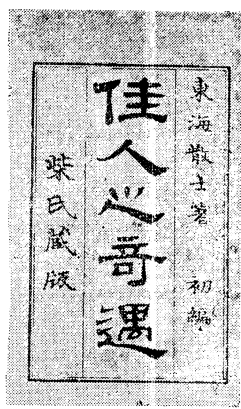 東海散士著　初編
佳人之奇遇
柴氏藏版